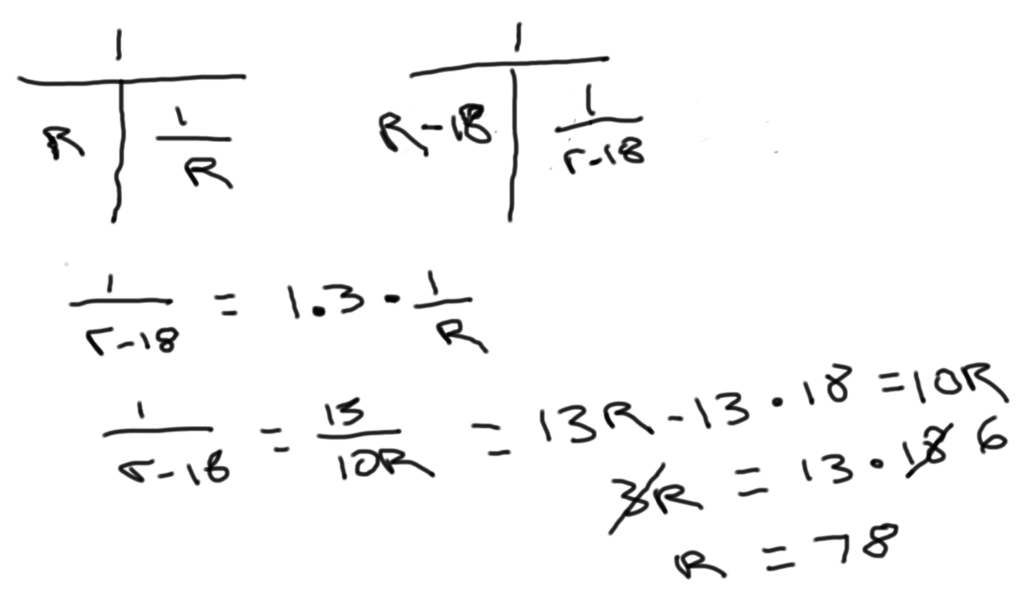 1 1
R 1/R R-18 1/r-18
1/r-18 = 1.3 · 1/R
1/r-18 = 13/10R = 13R - 13 · 18 = 10R
3R = 13 · 18 6
R = 78